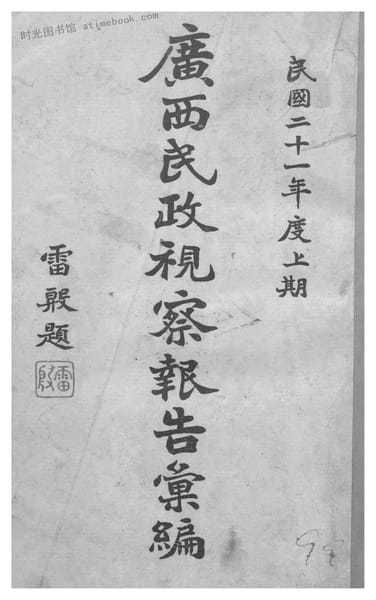 时光图书馆 atimebook.com
民國二十一年度上期
廣西民政視察報告彙編
雷殷題
雷殷